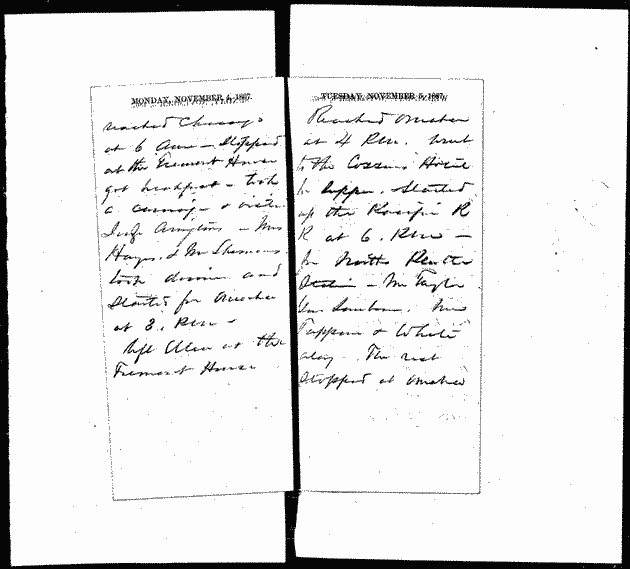 MONDAY, NOVEMBER 4, 1867.
reached Chicago
at 6 Am - Stopped
at the Fremont House
got breakfast - took
a carriage - & visited
Judge - Mrs
Hayes. & Mr Shermans.
took dinner and
Started for Omaha
at 3. P.M -
left Ellen at the
Fremont House
TUESDAY, NOVEMBER 5, 1867.
Reached Omaha
at 4 P.M. Went
to the Cozzins House
for supper. Started
up the Pacific R
R at 6. P.M -
for North Platte
Station - Mr Taylor
Gen Sanborn.
Tappan & White
along. The rest
Stopped at Omaha